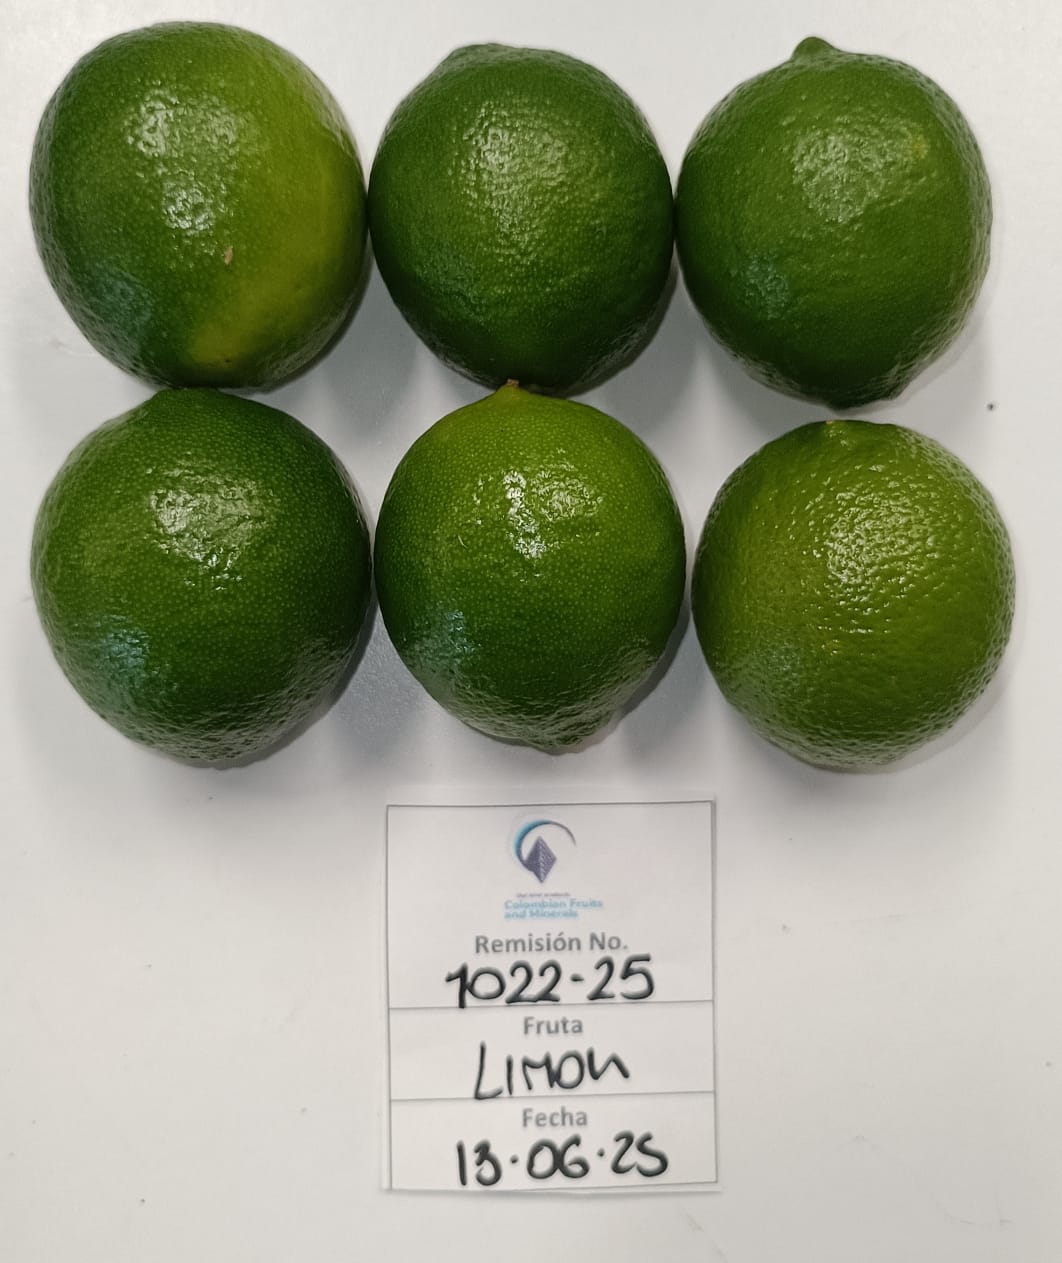 Colombian Fruits
and Minerals
Remisión No.
1022-25
Fruta
LIMON
Fecha
13.06.25